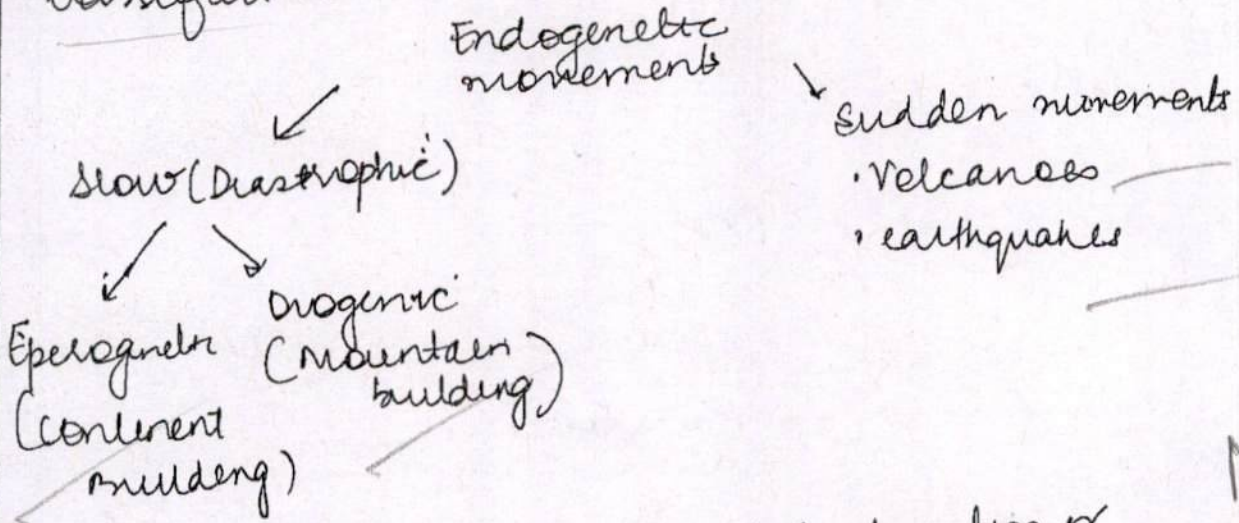 Endogenetic
movements
Slow (Diastrophic)
Sudden movements
• Volcanoes
• earthquakes
Epeirogenetic
(Continent
building)
Orogenic
(Mountain
building)